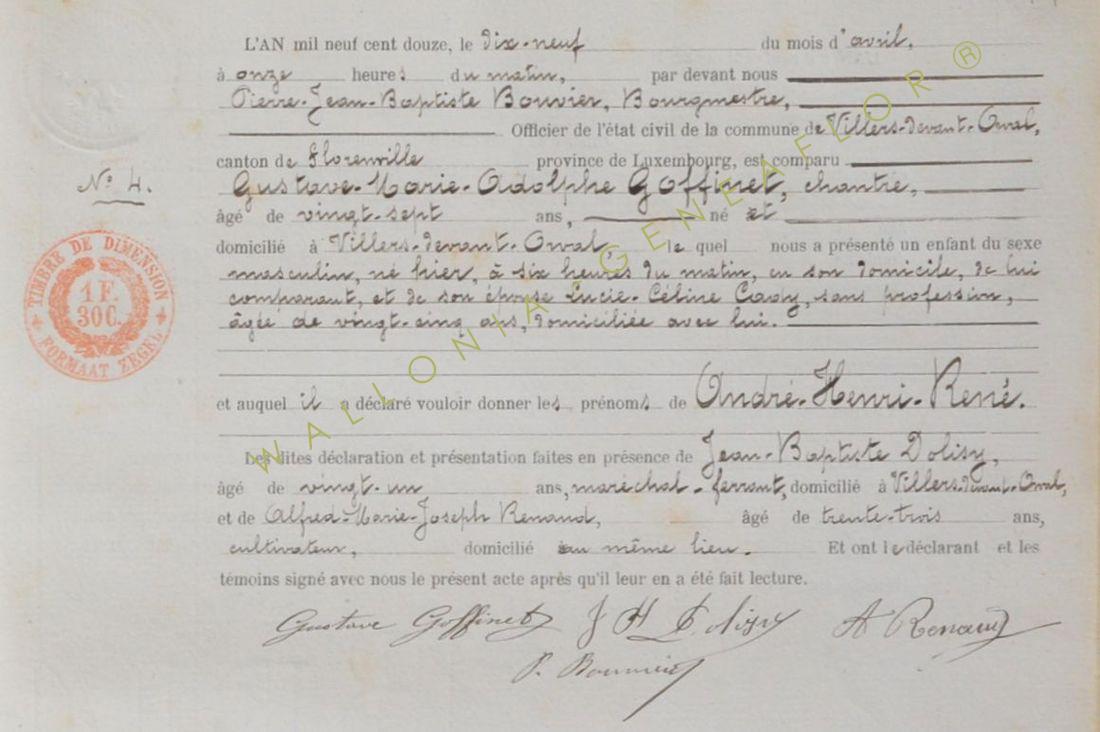 L'AN mil neuf cent douze, le dix-neuf du mois d'avril,
à onze heures du matin, par devant nous
Pierre-Jean-Baptiste Bouvier, Bourgmestre,
Officier de l'état civil de la commune de Villers-devant-Orval,
canton de Florenville province de Luxembourg, est comparu
Nº 4.
Gustave-Marie-Adolphe Goffinet, chantre,
âgé de vingt-sept ans, né et
domicilié à Villers-devant-Orval, le quel nous a présenté un enfant du sexe
masculin, né hier, à six heures du matin, en son domicile, de lui
comparant, et de son épouse Lucie-Céline Cady, sans profession,
âgée de vingt-cinq ans, domiciliée avec lui.
TIMBRE DE DIMENSION
1 F.
30 C.
FORMAAT ZEGEL
et auquel il a déclaré vouloir donner les prénoms de André-Henri-René.
Les dites déclaration et présentation faites en présence de Jean-Baptiste Dolisy,
âgé de vingt-un ans, maréchal-ferrant, domicilié à Villers-devant-Orval,
et de Alfred-Marie-Joseph Renaud, âgé de trente-trois ans,
cultivateur, domicilié au même lieu. Et ont le déclarant et les
témoins signé avec nous le présent acte après qu'il leur en a été fait lecture.
Gustave Goffinet J B Dolisy A Renaud
P. Bouvier
WALLONIA GENEAFLOR ®